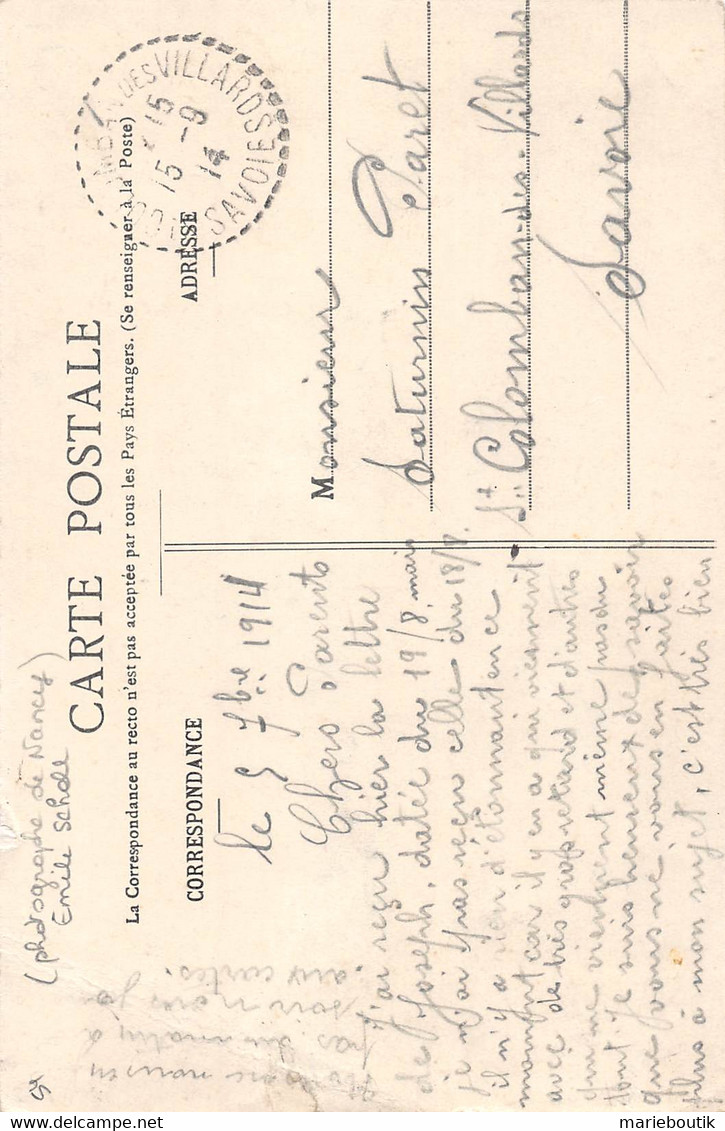 (photographe de Nancy)
Emile Scholl
CARTE POSTALE
La Correspondance au recto n'est pas acceptée par tous les Pays Étrangers. (Se renseigner à la Poste)
CORRESPONDANCE
ADRESSE
DES VILLARDS
15
15 - 9
14
SAVOIE
Monsieur
Saturnin Paret
St Colomban-des-Villards
Savoie
le 5 7bre 1914
Chers Parents
J'ai reçu hier la lettre
de Joseph, datée du 19/8, mais
je n'ai pas reçu celle du 18/8.
il n'y a rien d'étonnant en ce
moment car il y en a qui viennent
avec de très gros retard et d'autres
qui ne viennent même pas du
tout je suis heureux de savoir
que vous ne vous en faites
plus à mon sujet, c'est très bien
pas du matin à
soir nous jo
aux cartes.
54
marieboutik